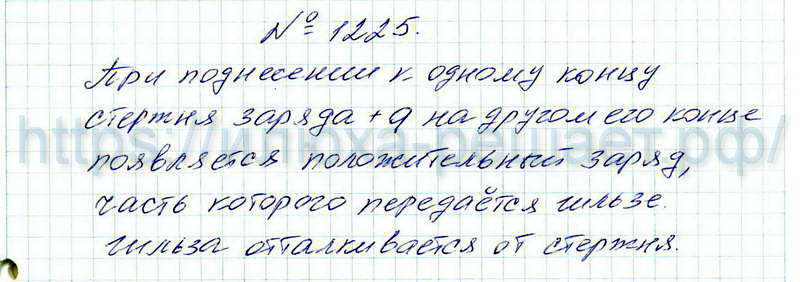 № 1225.
При поднесении к одному концу
стержня заряда +q на другом его конце
появляется положительный заряд,
часть которого передаётся гильзе.
Гильза отталкивается от стержня.
https://илюха-решает.рф/